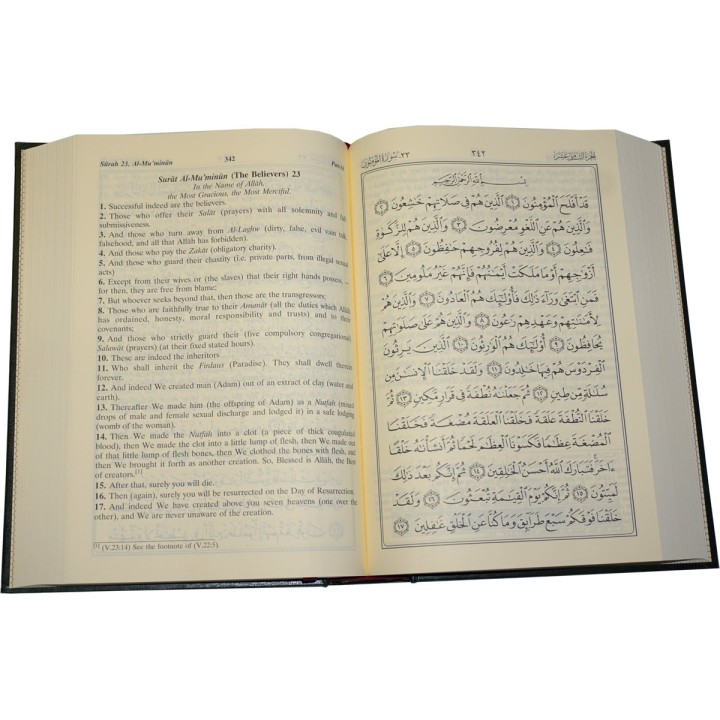 Sûrah 23. Al-Mu'minûn 342
Sûrat Al-Mu'minûn (The Believers) 23
In the Name of Allâh,
the Most Gracious, the Most Merciful.
1. Successful indeed are the believers.
2. Those who offer their Salât (prayers) with all solemnity and full
submissiveness.
3. And those who turn away from Al-Laghw (dirty, false, evil vain talk,
falsehood, and all that Allâh has forbidden).
4. And those who pay the Zakât (obligatory charity).
5. And those who guard their chastity (i.e. private parts, from illegal sexual
acts)
6. Except from their wives or (the slaves) that their right hands possess, —
for then, they are free from blame;
7. But whoever seeks beyond that, then those are the transgressors;
8. Those who are faithfully true to their Amanât (all the duties which Allâh
has ordained, honesty, moral responsibility and trusts) and to their
covenants;
9. And those who strictly guard their (five compulsory congregational)
Salawât (prayers) (at their fixed stated hours).
10. These are indeed the inheritors
11. Who shall inherit the Firdaus (Paradise). They shall dwell therein
forever.
12. And indeed We created man (Adam) out of an extract of clay (water and
earth).
13. Thereafter We made him (the offspring of Adam) as a Nutfah (mixed
drops of male and female sexual discharge and lodged it) in a safe lodging
(womb of the woman).
14. Then We made the Nutfah into a clot (a piece of thick coagulated
blood), then We made the clot into a little lump of flesh, then We made out
of that little lump of flesh bones, then We clothed the bones with flesh, and
then We brought it forth as another creation. So, Blessed is Allâh, the Best
of creators.[1]
15. After that, surely you will die.
16. Then (again), surely you will be resurrected on the Day of Resurrection.
17. And indeed We have created above you seven heavens (one over the
other), and We are never unaware of the creation.
[1] (V.23:14) See the footnote of (V.22:5).
٢٣. سورة المؤمنون ٣٤٢ الجزء الثامن عشر
بِسْمِ اللَّهِ الرَّحْمَٰنِ الرَّحِيمِ
قَدْ أَفْلَحَ الْمُؤْمِنُونَ ١ الَّذِينَ هُمْ فِي صَلَاتِهِمْ خَاشِعُونَ ٢
وَالَّذِينَ هُمْ عَنِ اللَّغْوِ مُعْرِضُونَ ٣ وَالَّذِينَ هُمْ لِلزَّكَوٰةِ
فَاعِلُونَ ٤ وَالَّذِينَ هُمْ لِفُرُوجِهِمْ حَافِظُونَ ٥ إِلَّا عَلَىٰ
أَزْوَاجِهِمْ أَوْ مَا مَلَكَتْ أَيْمَانُهُمْ فَإِنَّهُمْ غَيْرُ مَلُومِينَ ٦
فَمَنِ ابْتَغَىٰ وَرَاءَ ذَٰلِكَ فَأُولَٰئِكَ هُمُ الْعَادُونَ ٧ وَالَّذِينَ هُمْ
لِأَمَانَاتِهِمْ وَعَهْدِهِمْ رَاعُونَ ٨ وَالَّذِينَ هُمْ عَلَىٰ صَلَوَاتِهِمْ
يُحَافِظُونَ ٩ أُولَٰئِكَ هُمُ الْوَارِثُونَ ١٠ الَّذِينَ يَرِثُونَ
الْفِرْدَوْسَ هُمْ فِيهَا خَالِدُونَ ١١ وَلَقَدْ خَلَقْنَا الْإِنسَانَ مِن
سُلَالَةٍ مِّن طِينٍ ١٢ ثُمَّ جَعَلْنَاهُ نُطْفَةً فِي قَرَارٍ مَّكِينٍ ١٣ ثُمَّ
خَلَقْنَا النُّطْفَةَ عَلَقَةً فَخَلَقْنَا الْعَلَقَةَ مُضْغَةً فَخَلَقْنَا
الْمُضْغَةَ عِظَامًا فَكَسَوْنَا الْعِظَامَ لَحْمًا ثُمَّ أَنشَأْنَاهُ خَلْقًا
آخَرَ فَتَبَارَكَ اللَّهُ أَحْسَنُ الْخَالِقِينَ ١٤ ثُمَّ إِنَّكُم بَعْدَ ذَٰلِكَ
لَمَيِّتُونَ ١٥ ثُمَّ إِنَّكُمْ يَوْمَ الْقِيَامَةِ تُبْعَثُونَ ١٦ وَلَقَدْ
خَلَقْنَا فَوْقَكُمْ سَبْعَ طَرَائِقَ وَمَا كُنَّا عَنِ الْخَلْقِ غَافِلِينَ ١٧